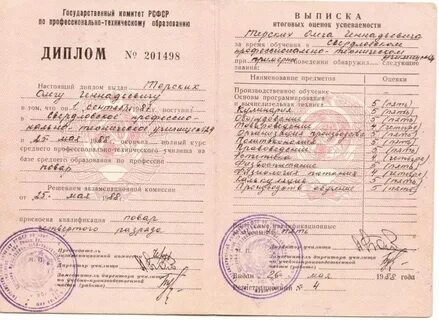 Государственный комитет РСФСР
по профессионально-техническому образованию
ДИПЛОМ № 201498
Настоящий диплом выдан Терских
Олегу Геннадьевичу
в том, что он 1 сентября 87 г. поступил
в Свердловское профессио-
нально-техническое училище
и 25 мая 88 г. полный курс
среднего профессионально-технического училища на
базе среднего образования по профессии
повар
Решением экзаменационной комиссии
от 25 мая 1988 г.
присвоена квалификация повар
четвертого разряда
Председатель
Директор училища
Заместитель директора училища
по учебно-производственной
ВЫПИСКА
итоговых оценок успеваемости
Терских Олега Геннадьевича
за время обучения в Свердловском
профессионально-техническом
при примерном поведении обнаружил
знания:
Наименование предметов Оценки
Производственное обучение 5 (пять)
Основы программирования
и вычислительной
Кулинария 5 (пять)
Оборудование 5 (пять)
Товароведение 4 (четыре)
Организация производства 5 (пять)
Политэкономия 5 (пять)
Правоведение 5 (пять)
Эстетика 4 (четыре)
Физвоспитание 4 (четыре)
Физиология питания 4 (четыре)
Калькуляция 4 (четыре)
Производств. обучение 5 (пять)
Директор училища
Заместитель директора училища
по учебно-производственной
части (работе)
Выдан 26 мая 1988 г.
Регистрационный № 4